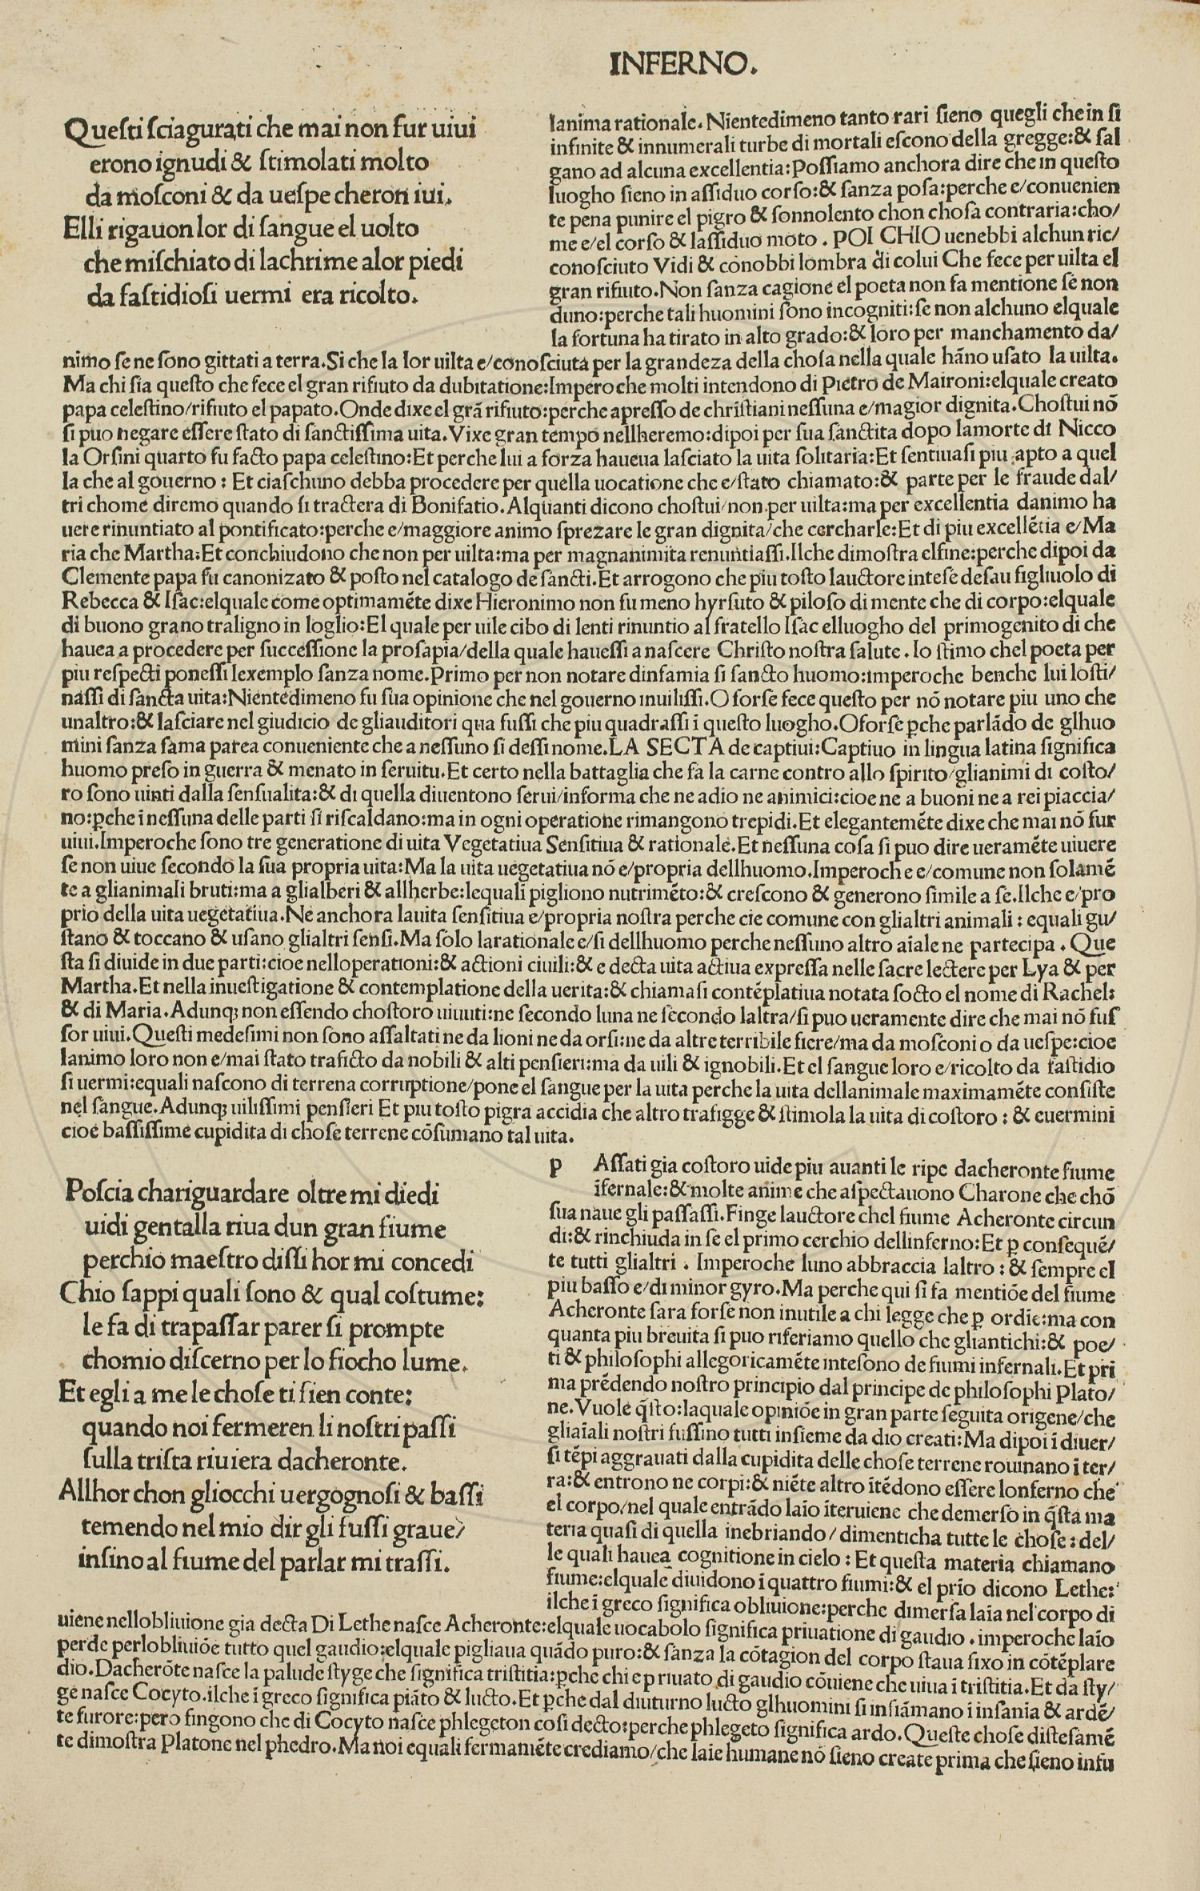 INFERNO.
Questi sciagurati che mai non fur uiui
erono ignudi & stimolati molto
da mosconi & da uespe cheron iui.
Elli rigauon lor di sangue el uolto
che mischiato di lachrime alor piedi
da fastidiosi uermi era ricolto.
lanima rationale. Nientedimeno tanto rari sieno quegli che in si
infinite & innumerali turbe di mortali escono della gregge:& sal
gano ad alcuna excellentia:Possiamo anchora dire che in questo
luogho sieno in assiduo corso:& sanza posa:perche e/conuenien
te pena punire el pigro & sonnolento chon chosa contraria:cho/
me e/el corso & lassiduo moto . POI CHIO uenebbi alchun ric/
conosciuto Vidi & conobbi lombra di colui Che fece per uilta el
gran rifiuto.Non sanza cagione el poeta non fa mentione se non
duno:perche tali huomini sono incogniti:se non alchuno elquale
la fortuna ha tirato in alto grado:& loro per manchamento da/
nimo se ne sono gittati a terra.Si che la lor uilta e/conosciuta per la grandeza della chosa nella quale hāno usato la uilta.
Ma chi sia questo che fece el gran rifiuto da dubitatione:Impero che molti intendono di Pietro de Maironi:elquale creato
papa celestino/rifiuto el papato.Onde dixe el grā rifiuto:perche apresso de christiani nessuna e/magior dignita.Chostui nō
si puo negare essere stato di sanctissima uita.Vixe gran tempo nellheremo:dipoi per sua sanctita dopo lamorte di Nicco
la Orsini quarto fu facto papa celestino:Et perche lui a forza haueua lasciato la uita solitaria:Et sentiuasi piu apto a quel
la che al gouerno : Et ciaschuno debba procedere per quella uocatione che e/stato chiamato:& parte per le fraude dal/
tri chome diremo quando si tractera di Bonifatio.Alquanti dicono chostui/non per uilta:ma per excellentia danimo ha
uere rinuntiato al pontificato:perche e/maggiore animo sprezare le gran dignita/che cercharle:Et di piu excellētia e/Ma
ria che Martha:Et conchiudono che non per uilta:ma per magnanimita renuntiassi.Ilche dimostra elfine:perche dipoi da
Clemente papa fu canonizato & posto nel catalogo de sancti.Et arrogono che piu tosto lauctore intese desau figliuolo di
Rebecca & Isac:elquale come optimamēte dixe Hieronimo non fu meno hyrsuto & piloso di mente che di corpo:elquale
di buono grano traligno in loglio:El quale per uile cibo di lenti rinuntio al fratello Isac elluogho del primogenito di che
hauea a procedere per successione la prosapia/della quale hauessi a nascere Christo nostra salute . Io stimo chel poeta per
piu respecti ponessi lexemplo sanza nome.Primo per non notare dinfamia si sancto huomo:imperoche benche lui losti/
nassi di sancta uita:Nientedimeno fu sua opinione che nel gouerno inuilissi.O forse fece questo per nō notare piu uno che
unaltro:& lasciare nel giudicio de gliauditori qua fussi che piu quadrassi ī questo luogho.Oforse pche parlādo de glhuo
mini sanza fama parea conueniente che a nessuno si dessi nome.LA SECTA de captiui:Captiuo in lingua latina significa
huomo preso in guerra & menato in seruitu.Et certo nella battaglia che fa la carne contro allo spirito/glianimi di costo/
ro sono uinti dalla sensualita:& di quella diuentono serui/informa che ne adio ne animici:cioe ne a buoni ne a rei piaccia/
no:pche ī nessuna delle parti si riscaldano:ma in ogni operatione rimangono trepidi.Et elegantemēte dixe che mai nō fur
uiui.Imperoche sono tre generatione di uita Vegetatiua Sensitiua & rationale.Et nessuna cosa si puo dire ueramēte uiuere
se non uiue secondo la sua propria uita:Ma la uita uegetatiua nō e/propria dellhuomo.Imperoche e/comune non solamē
te a glianimali bruti:ma a glialberi & allherbe:lequali pigliono nutrimēto:& crescono & generono simile a se.Ilche e/pro
prio della uita uegetatiua.Ne anchora lauita sensitiua e/propria nostra perche cie comune con glialtri animali : equali gu/
stano & toccano & usano glialtri sensi.Ma solo larationale e/si dellhuomo perche nessuno altro aīale ne partecipa . Que
sta si diuide in due parti:cioe nelloperationi:& actioni ciuili:& e decta uita actiua expressa nelle sacre lectere per Lya & per
Martha.Et nella inuestigatione & contemplatione della uerita:& chiamasi contēplatiua notata socto el nome di Rachel:
& di Maria.Adunq; non essendo chostoro uiuuti:ne secondo luna ne secondo laltra/si puo ueramente dire che mai nō fus
sor uiui.Questi medesimi non sono assaltati ne da lioni ne da orsi:ne da altre terribile fiere/ma da mosconi o da uespe:cioe
lanimo loro non e/mai stato traficto da nobili & alti pensieri:ma da uili & ignobili.Et el sangue loro e/ricolto da fastidio
si uermi:equali nascono di terrena corruptione/pone el sangue per la uita perche la uita dellanimale maximamēte consiste
nel sangue.Adunq; uilissimi pensieri Et piu tosto pigra accidia che altro trafigge & stimola la uita di costoro : & euermini
cioe bassissime cupidita di chose terrene cōsumano tal uita.
Poscia chariguardare oltre mi diedi
uidi gentalla riua dun gran fiume
perchio maestro dissi hor mi concedi
Chio sappi quali sono & qual costume:
le fa di trapassar parer si prompte
chomio discerno per lo fiocho lume.
Et egli a me le chose ti sien conte:
quando noi fermeren li nostri passi
sulla trista riuiera dacheronte.
Allhor chon gliocchi uergognosi & bassi
temendo nel mio dir gli fussi graue/
insino al fiume del parlar mi trassi.
p Assati gia costoro uide piu auanti le ripe dacheronte fiume
īfernale:& molte anime che aspectauono Charone che chō
sua naue gli passassi.Finge lauctore chel fiume Acheronte circun
di:& rinchiuda in se el primo cerchio dellinferno:Et p consequē/
te tutti glialtri . Imperoche luno abbraccia laltro : & sempre el
piu basso e/di minor gyro.Ma perche qui si fa mentiōe del fiume
Acheronte sara forse non inutile a chi legge che p ordīe:ma con
quanta piu breuita si puo riferiamo quello che gliantichi:& poe/
ti & philosophi allegoricamēte intesono de fiumi infernali.Et pri
ma prēdendo nostro principio dal principe de philosophi Plato/
ne.Vuole q̄sto:laquale opiniōe in gran parte seguita origene/che
gliaīali nostri fussino tutti insieme da dio creati:Ma dipoi ī diuer/
si tēpi aggrauati dalla cupidita delle chose terrene rouinano ī ter/
ra:& entrono ne corpi:& niēte altro ītēdono essere lonferno che
el corpo/nel quale entrādo laīo īteruiene che demerso in q̄sta ma
teria quasi di quella inebriando/dimenticha tutte le chose : del/
le quali hauea cognitione in cielo : Et questa materia chiamano
fiume:elquale diuidono ī quattro fiumi:& el prīo dicono Lethe:
ilche ī greco significa obliuione:perche dimersa laīa nel corpo di
uiene nellobliuione gia decta Di Lethe nasce Acheronte:elquale uocabolo significa priuatione di gaudio . imperoche laīo
perde perlobliuiōe tutto quel gaudio:elquale pigliaua quādo puro:& sanza la cōtagion del corpo staua fixo in cōtēplare
dio.Dacherōte nasce la palude styge che significa tristitia:pche chi e priuato di gaudio cōuiene che uiua ī tristitia.Et da sty/
ge nasce Cocyto.ilche ī greco significa piāto & lucto.Et pche dal diuturno lucto glhuomini si infiāmano ī insania & ardē/
te furore:pero fingono che di Cocyto nasce phlegeton cosi decto:perche phlegeto significa ardo.Queste chose distesamē
te dimostra Platone nel phedro.Ma noi equali fermamēte crediamo/che laīe humane nō sieno create prima che sieno infu